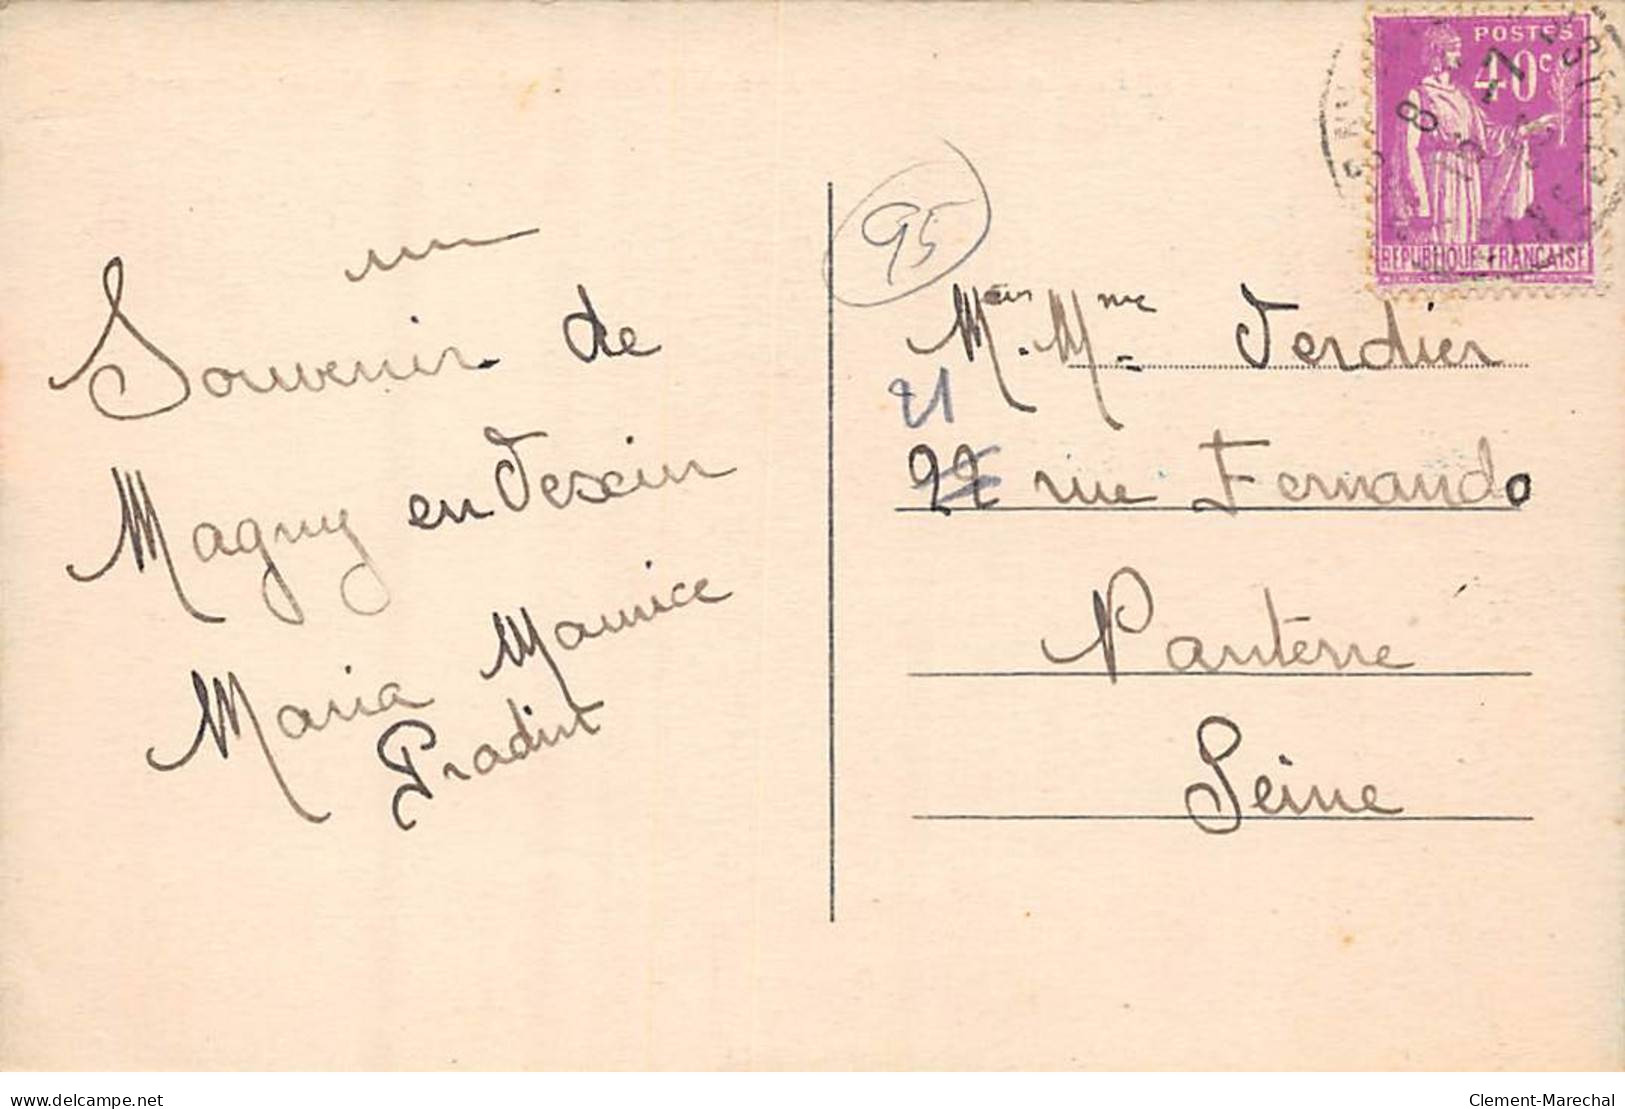 un
Souvenir de
Magny en Vexin
Maria Maurice
Pradin
95
POSTES
40c
8
17
REPUBLIQUE FRANÇAISE
Meur. Mme. Verdier
21
22 rue Fernando
Nanterre
Seine
www.delcampe.net
Clement-Marechal